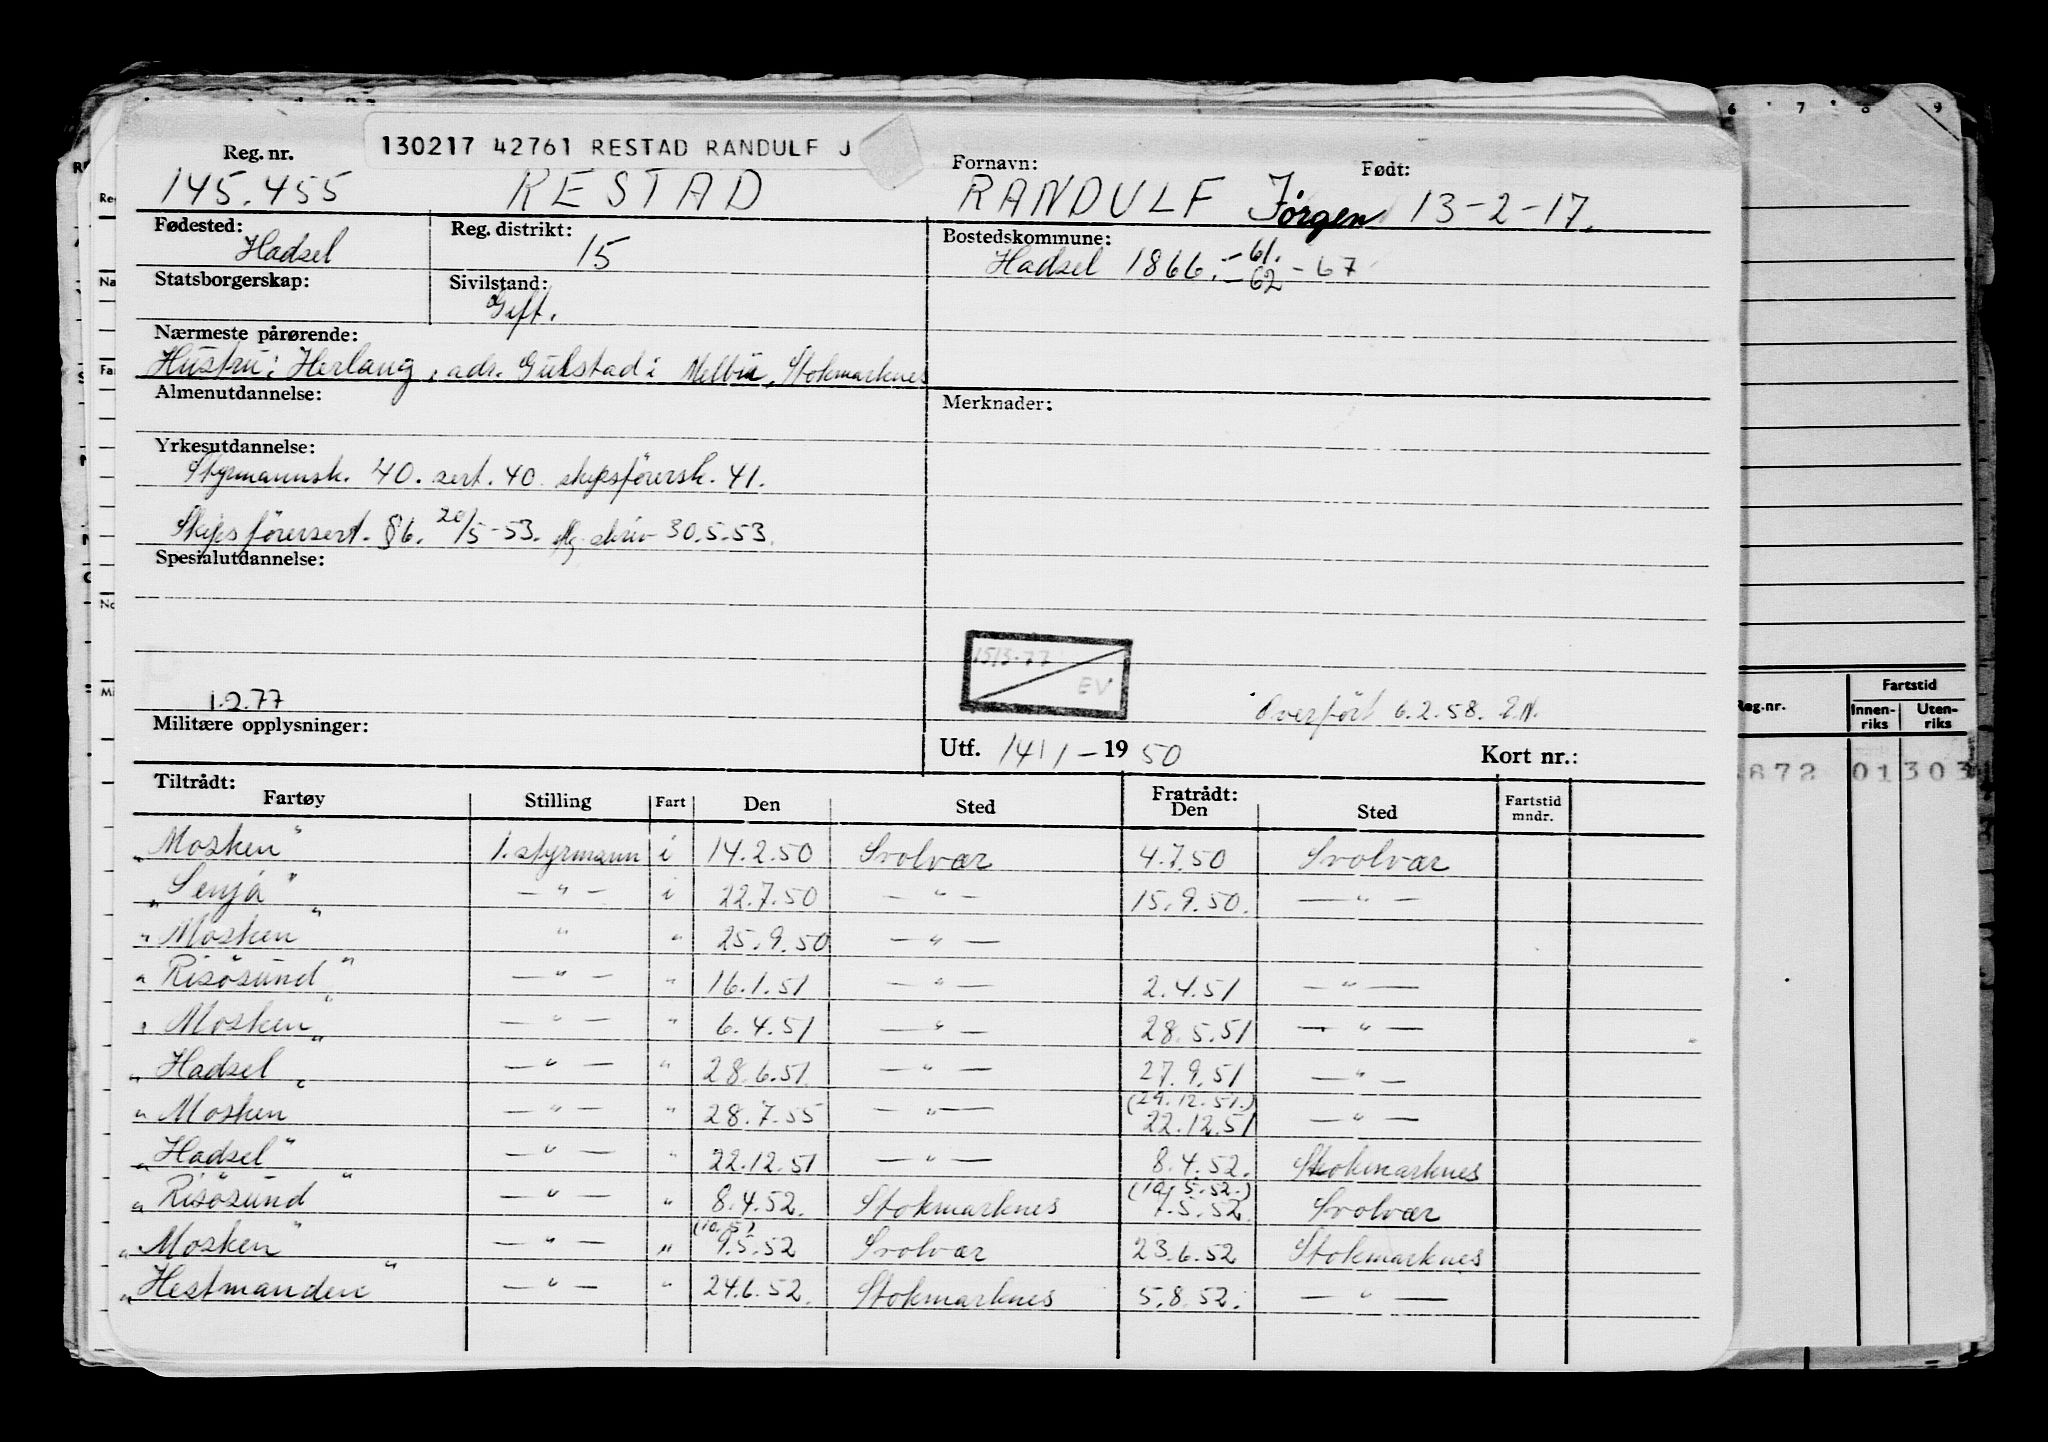 130217 42761 RESTAD RANDULF J
Reg. nr. Fornavn: Født:
145.455 RESTAD RANDULF Jörgen 13-2-17.
Fødested: Hadsel Reg. distrikt: 15 Bostedskommune: Hadsel 1866. - 61. - 62 - 67
Statsborgerskap: Sivilstand: Gift.
Nærmeste pårørende:
Hustru: Herlaug, adr. Gulstad i Melbu, Stokmarknes
Almenutdannelse: Merknader:
Yrkesutdannelse:
Styrmannsk. 40. sert. 40 skipsförersk. 41.
Skipsförersert. §6. 20/5-53. skriv 30.5.53.
Spesialutdannelse:
1513-77
EV
1.2.77 Överfört 6.2.58.
Militære opplysninger:
Utf. 14/1 - 1950 Kort nr.:
Tiltrådt: Fratrådt:
Fartøy Stilling Fart Den Sted Den Sted Fartstid mndr.
„Mosken" 1. styrmann i 14.2.50 Svolvær 4.7.50 Svolvær
„Senja" — " — i 22.7.50 — " — 15.9.50. — " —
„Mosken" " " 25.9.50 — " —
„Risösund" — " — " 16.1.51 — " — 2.4.51 — " —
„Mosken" — " — " 6.4.51 — " — 28.5.51 — " —
„Hadsel" — " — " 28.6.51 — " — 27.9.51 — " —
„Mosken" — " — " 28.7.55 — " — (24.12.51.) 22.12.51 — " —
„Hadsel" — " — " 22.12.51 — " — 8.4.52. Stokmarknes
„Risösund" — " — " 8.4.52. Stokmarknes (10.5.52.) 7.5.52 Svolvær
„Mosken" — " — " (10.5) 9.5.52 Svolvær 23.6.52 Stokmarknes
„Hestmanden" — " — " 24.6.52. Stokmarknes 5.8.52. — " —
6 7 8 9
Reg.nr. Fartstid
Innen-riks Uten-riks
872 01 303